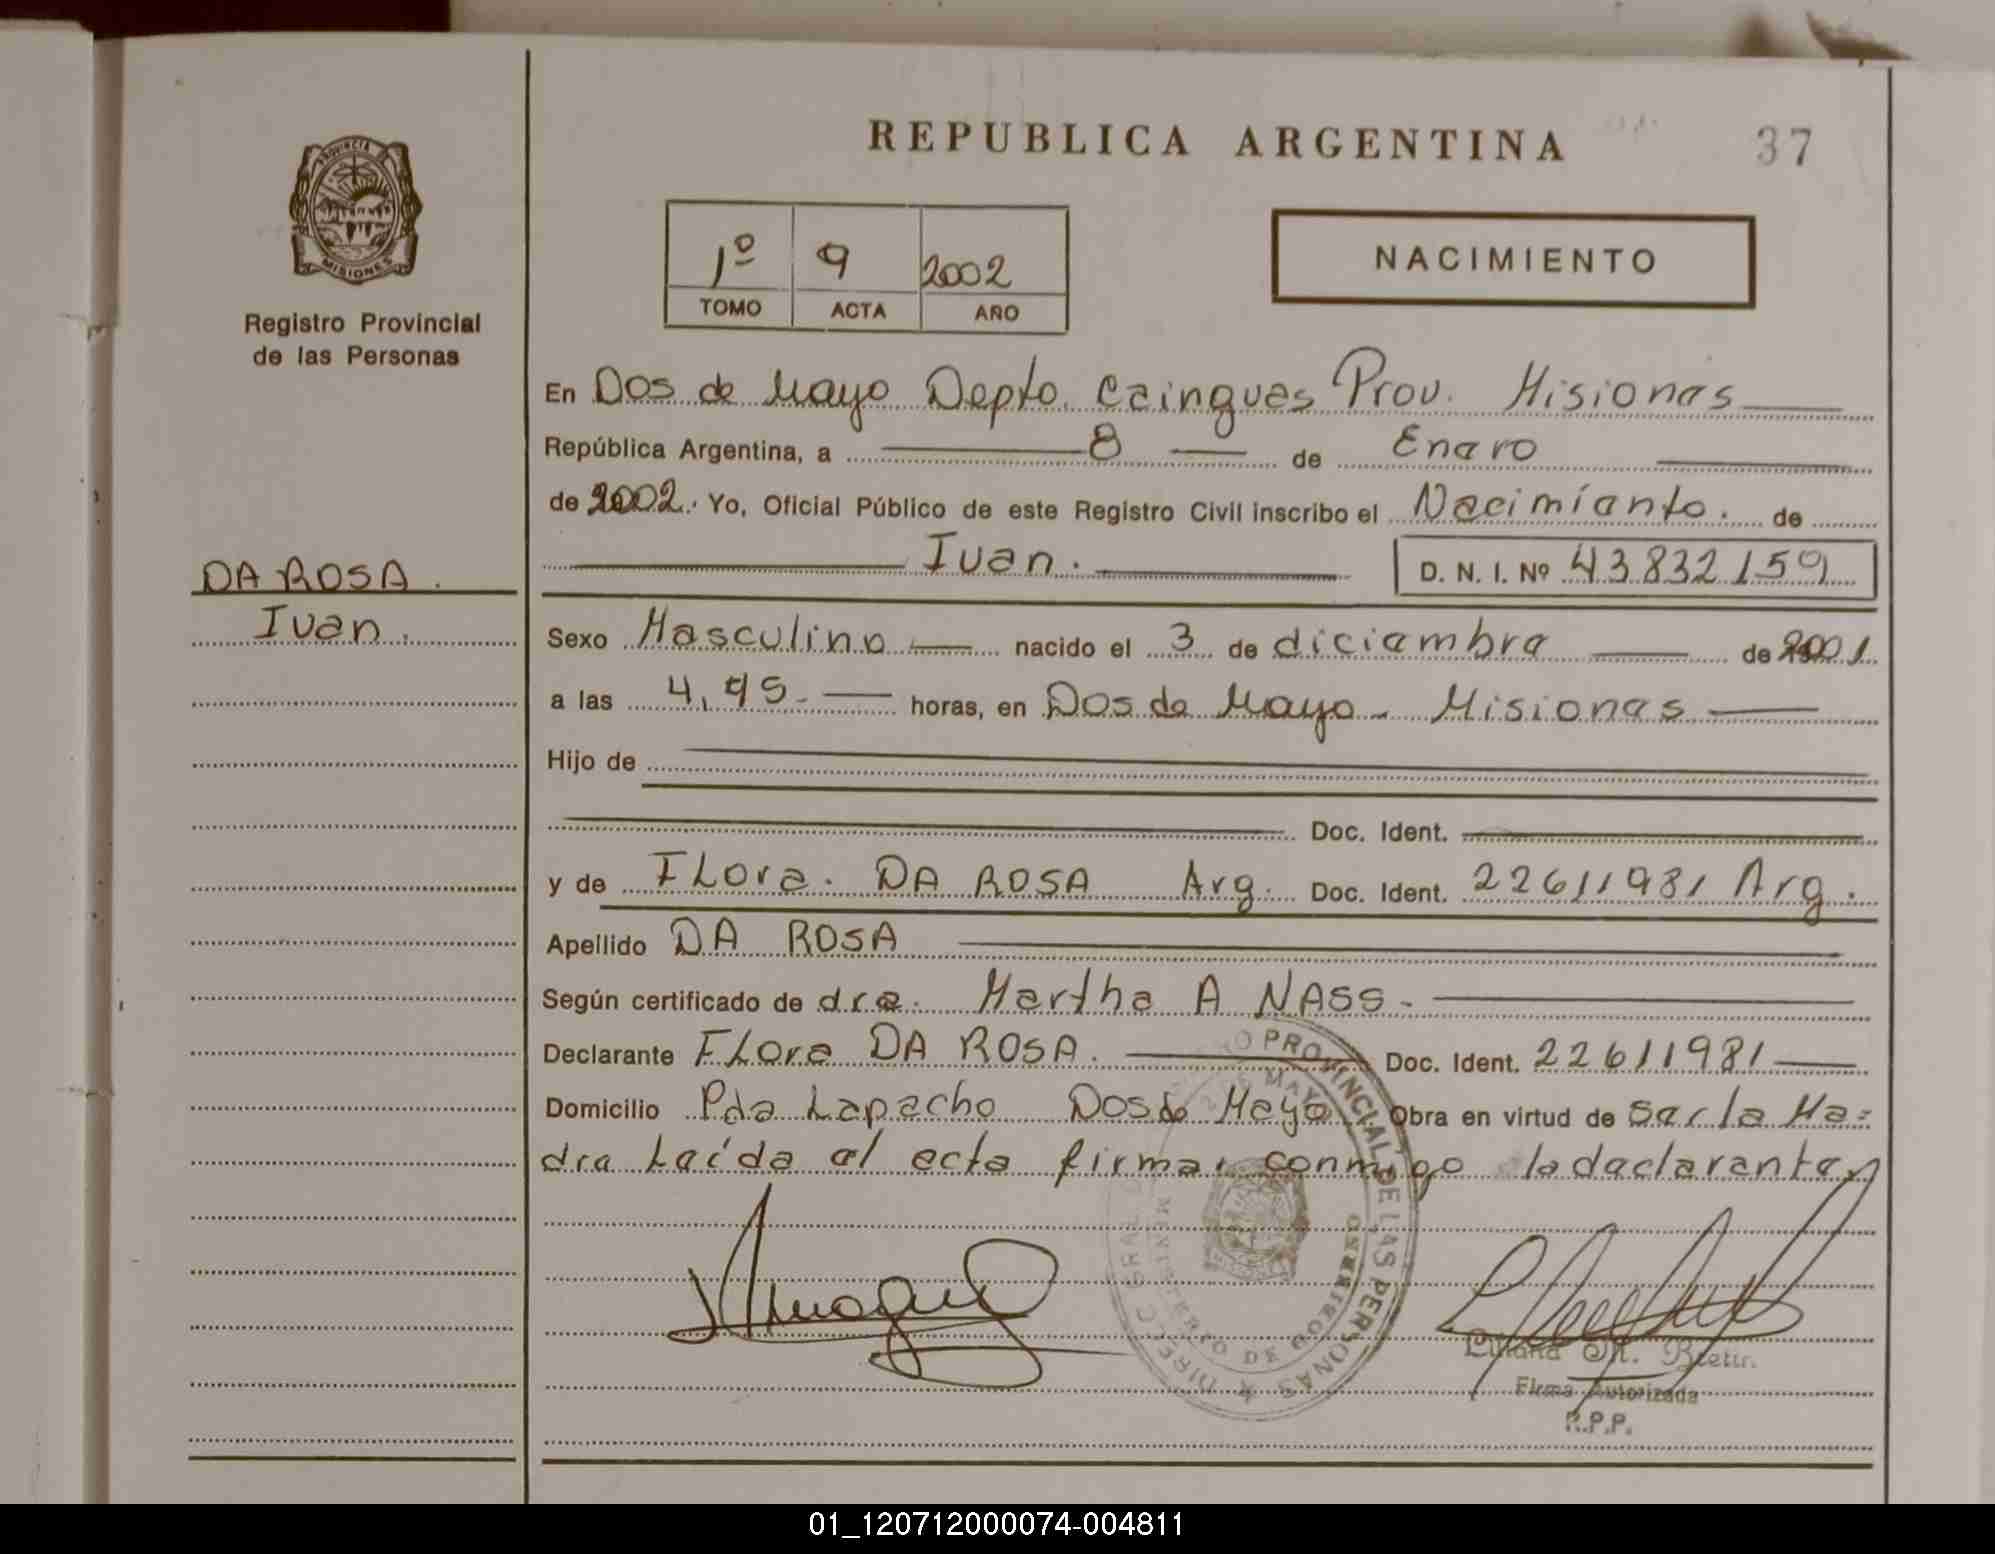 REPUBLICA ARGENTINA
37
PROVINCIA DE
MISIONES
Registro Provincial
de las Personas
1º 9 2002
TOMO ACTA AÑO
NACIMIENTO
En Dos de Mayo Depto. Cainguas Prov. Misiones
República Argentina, a 8 de Enero
de 2002. Yo, Oficial Público de este Registro Civil inscribo el Nacimiento. de
Ivan. D. N. I. Nº 43832159
DA ROSA.
Ivan.
Sexo Masculino nacido el 3 de diciembre de 2001
a las 4,45- horas, en Dos de Mayo - Misiones
Hijo de
Doc. Ident.
y de FLora. DA ROSA Arg. Doc. Ident. 22611981 Arg.
Apellido DA ROSA
Según certificado de dra. Martha A NASS -
Declarante FLora DA ROSA. Doc. Ident. 22611981
Domicilio Pda Lapacho Dos de Mayo Obra en virtud de ser la Ma=
dre Leída el acta firma, conmigo la declarante
PROVINCIAL DE LAS PERSONAS
MINISTERIO DE GOBIERNO
Liliana M.
Firma Autorizada
R.P.P.
01_120712000074-004811